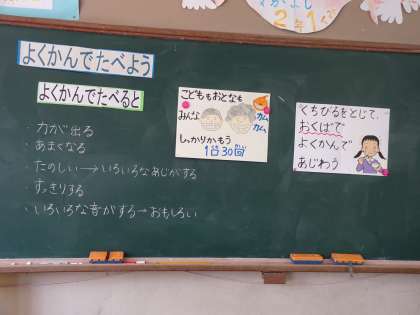 2年1くみ
よくかんでたべよう
よくかんでたべると
・力が出る
・あまくなる
・たのしい→いろいろなあじがする
・すっきりする
・いろいろな音がする→おもしろい
こどももおとなも
みんな
カム
カム
しっかりかもう
1口30回
くちびるをとじて、
おくばで
よくかんで
あじわう